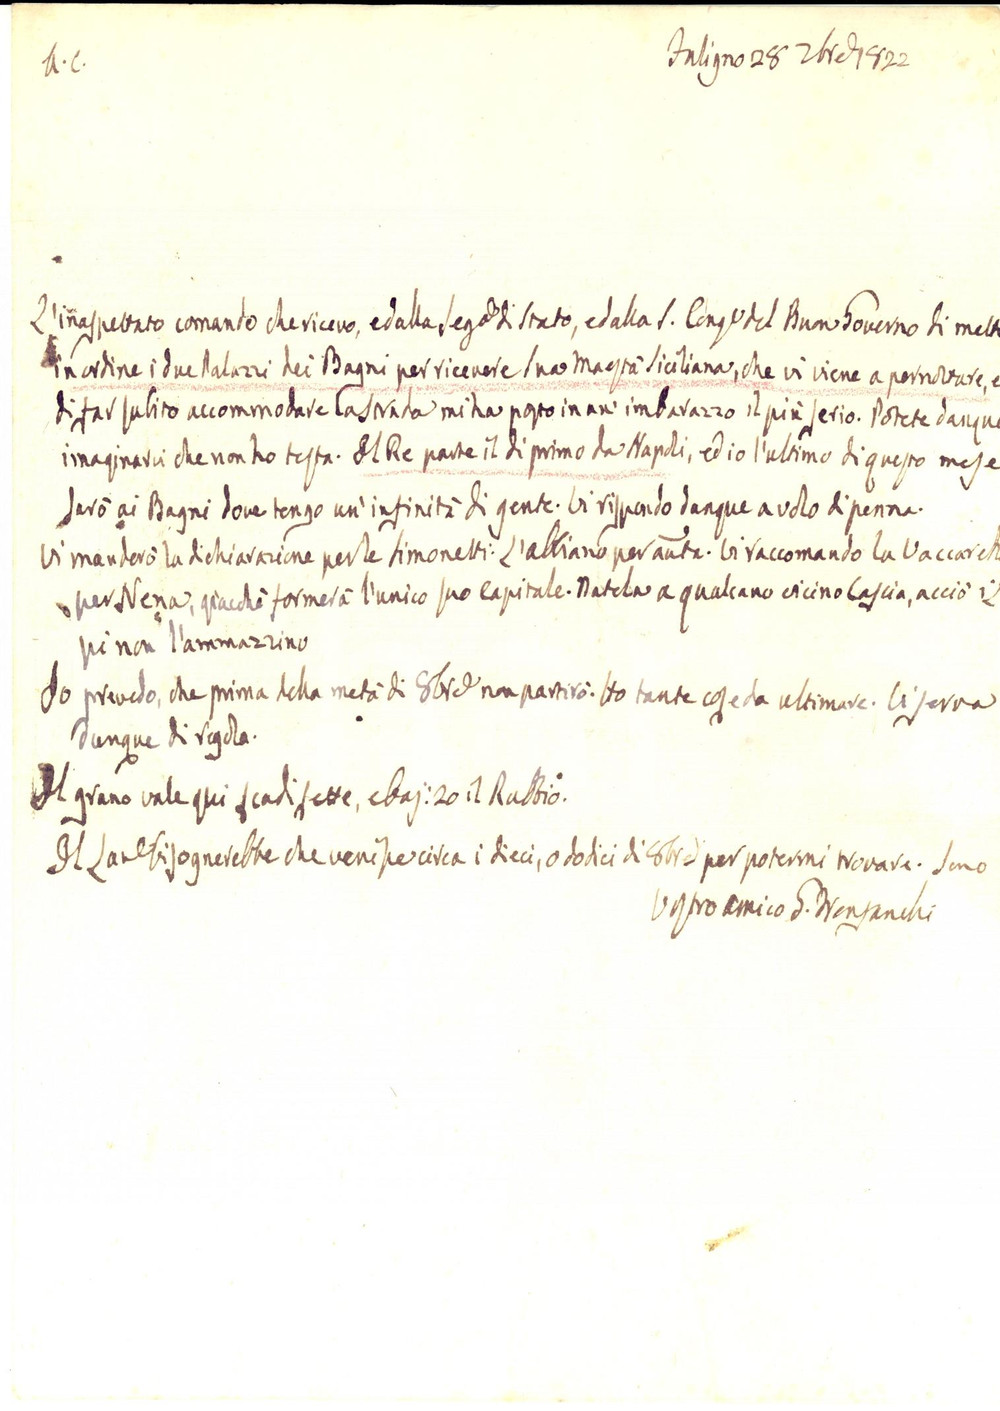 A. C.
Fuligno 28 7bre 1822
L'inaspettato comando che ricevo, e dalla Seg.a di Stato, e dalla S. Cong.e del Buon Governo di mett
in ordine i due Palazzi dei Bagni per ricevere Sua Maestà Siciliana, che vi viene a pernottare, e
di far subito accommodare la strada mi ha posto in un' imbarazzo il più serio. Potete dunque
imaginarvi che non ho testa. Il Re parte il di primo da Napoli, ed io l'ultimo di questo mese
sarò ai Bagni dove tengo un' infinità di gente. Vi rispondo dunque a volo di penna.
Vi manderò la dichiarazione per le Simonetti. L'abbiano per avuta. Vi raccomando la Vaccarel
per Nena, giacchè formerà l'unico suo capitale. Datela a qualcuno vicino Cascia, acciò i L
pi non l'ammazzino
Io prevedo, che prima della metà di 8bre non partirò. Ho tante cose da ultimare. Vi serva
dunque di regola.
Il grano vale qui scudi sette, e baj: 20 il Rubbio.
Il bisognerebbe che venisse circa i dieci, o dodici di 8bre per potermi trovare. Sono
Vostro amico G.